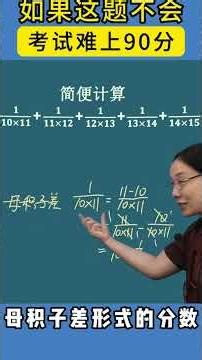 如果这题不会
考试难上90分
简便计算
1/10×11 + 1/11×12 + 1/12×13 + 1/13×14 + 1/14×15
母积子差 1/10×11 = 11-10/10×11
11/10×11 - 10/10×11
母积子差形式的分数